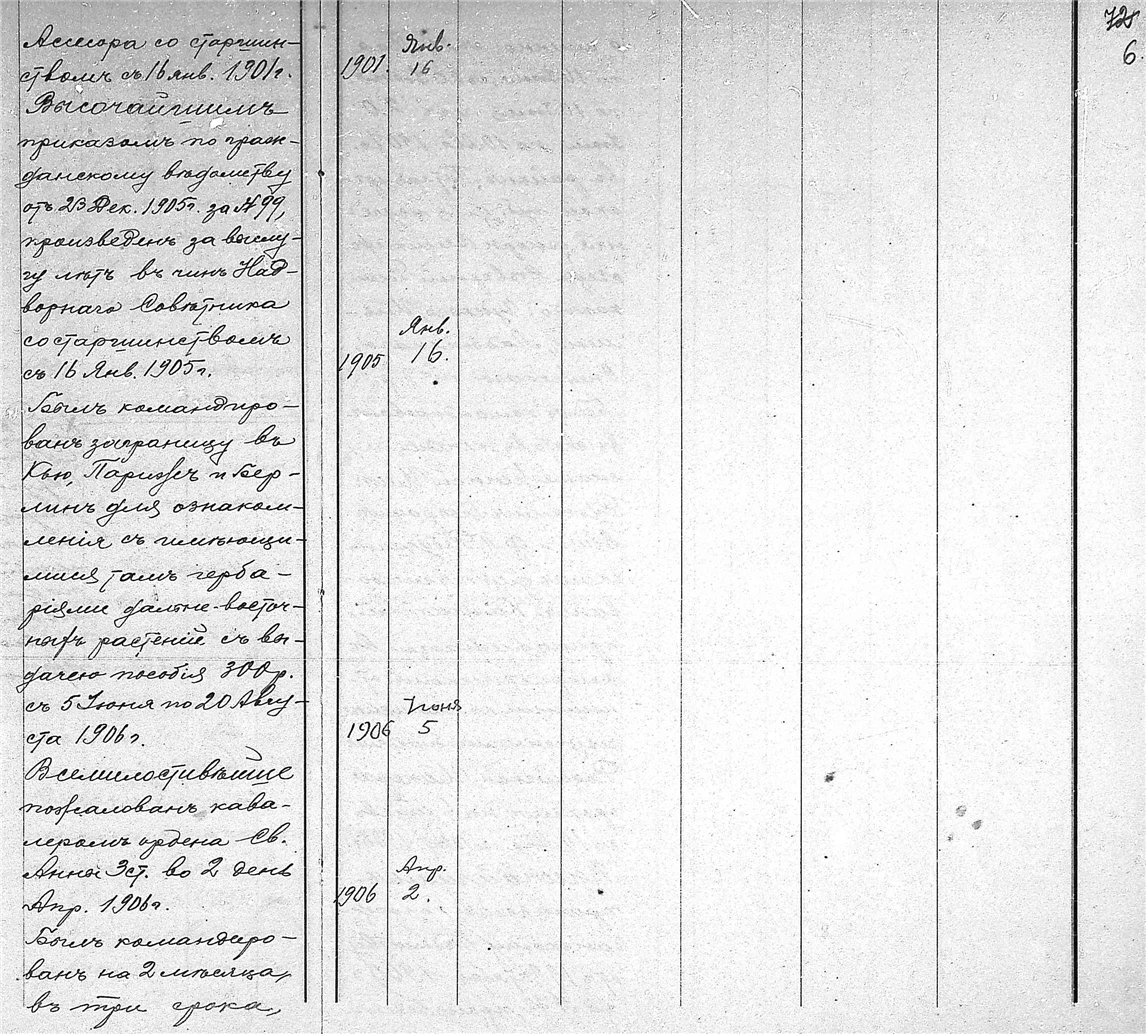 72
6.
Ассесора со старшин-
ствомъ съ 16 янв. 1901 г.
1901.
Янв.
16
Высочайшимъ
приказомъ по граж-
данскому вѣдомству
отъ 23 Дек. 1905 г. за № 99,
произведенъ за выслу-
гу лѣтъ въ чинъ Над-
ворнаго Совѣтника
со старшинствомъ
съ 16 Янв. 1905 г.
1905
Янв.
16.
Былъ командиро-
ванъ заграницу въ
Кью, Парижъ и Бер-
линъ для ознаком-
ленія съ имѣющи-
мися тамъ герба-
ріями дальне-восточ-
ныхъ растеній съ вы-
дачею пособія 300 р.
съ 5 Іюня по 20 Авгу-
ста 1906 г.
1906
Іюня
5
Всемилостивѣйше
пожалованъ кава-
леромъ ордена Св.
Анны 3 ст. во 2 день
Апр. 1906 г.
1906
Апр.
2.
Былъ командиро-
ванъ на 2 мѣсяца,
въ три срока,